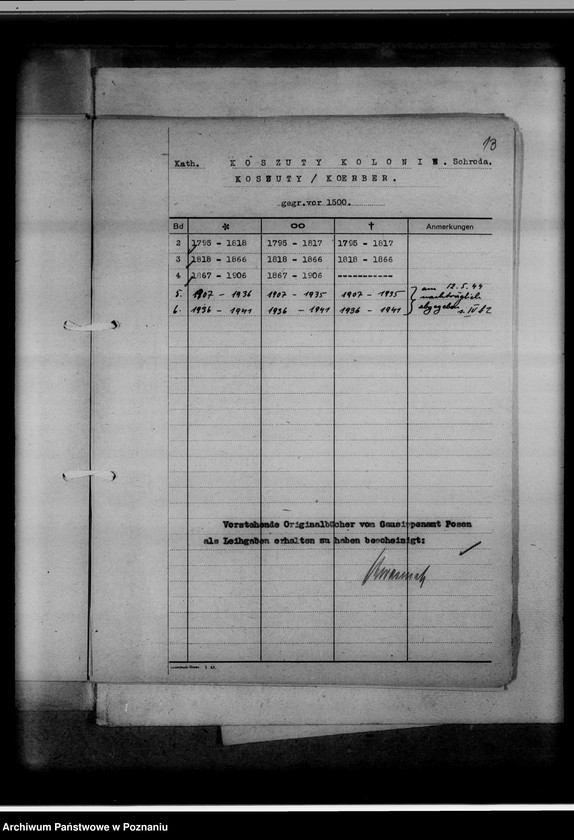 13
Kath. KOSZUTY KOLONIE. Schroda.
KOSZUTY / KOERBER.
gegr.vor 1500.
Bd * ∞ † Anmerkungen
2 1795 - 1818 1795 - 1817 1795 - 1817
3 1818 - 1866 1818 - 1866 1818 - 1866
4 1867 - 1906 1867 - 1906 -----------
5. 1907 - 1936 1907 - 1935 1907 - 1935 am 12.5.44
nachträglich
6. 1936 - 1941 1936 - 1941 1936 - 1941 abgegeben
Vorstehende Originalbücher vom Gausippenamt Posen
als Leihgaben erhalten zu haben bescheinigt:
Archiwum Państwowe w Poznaniu